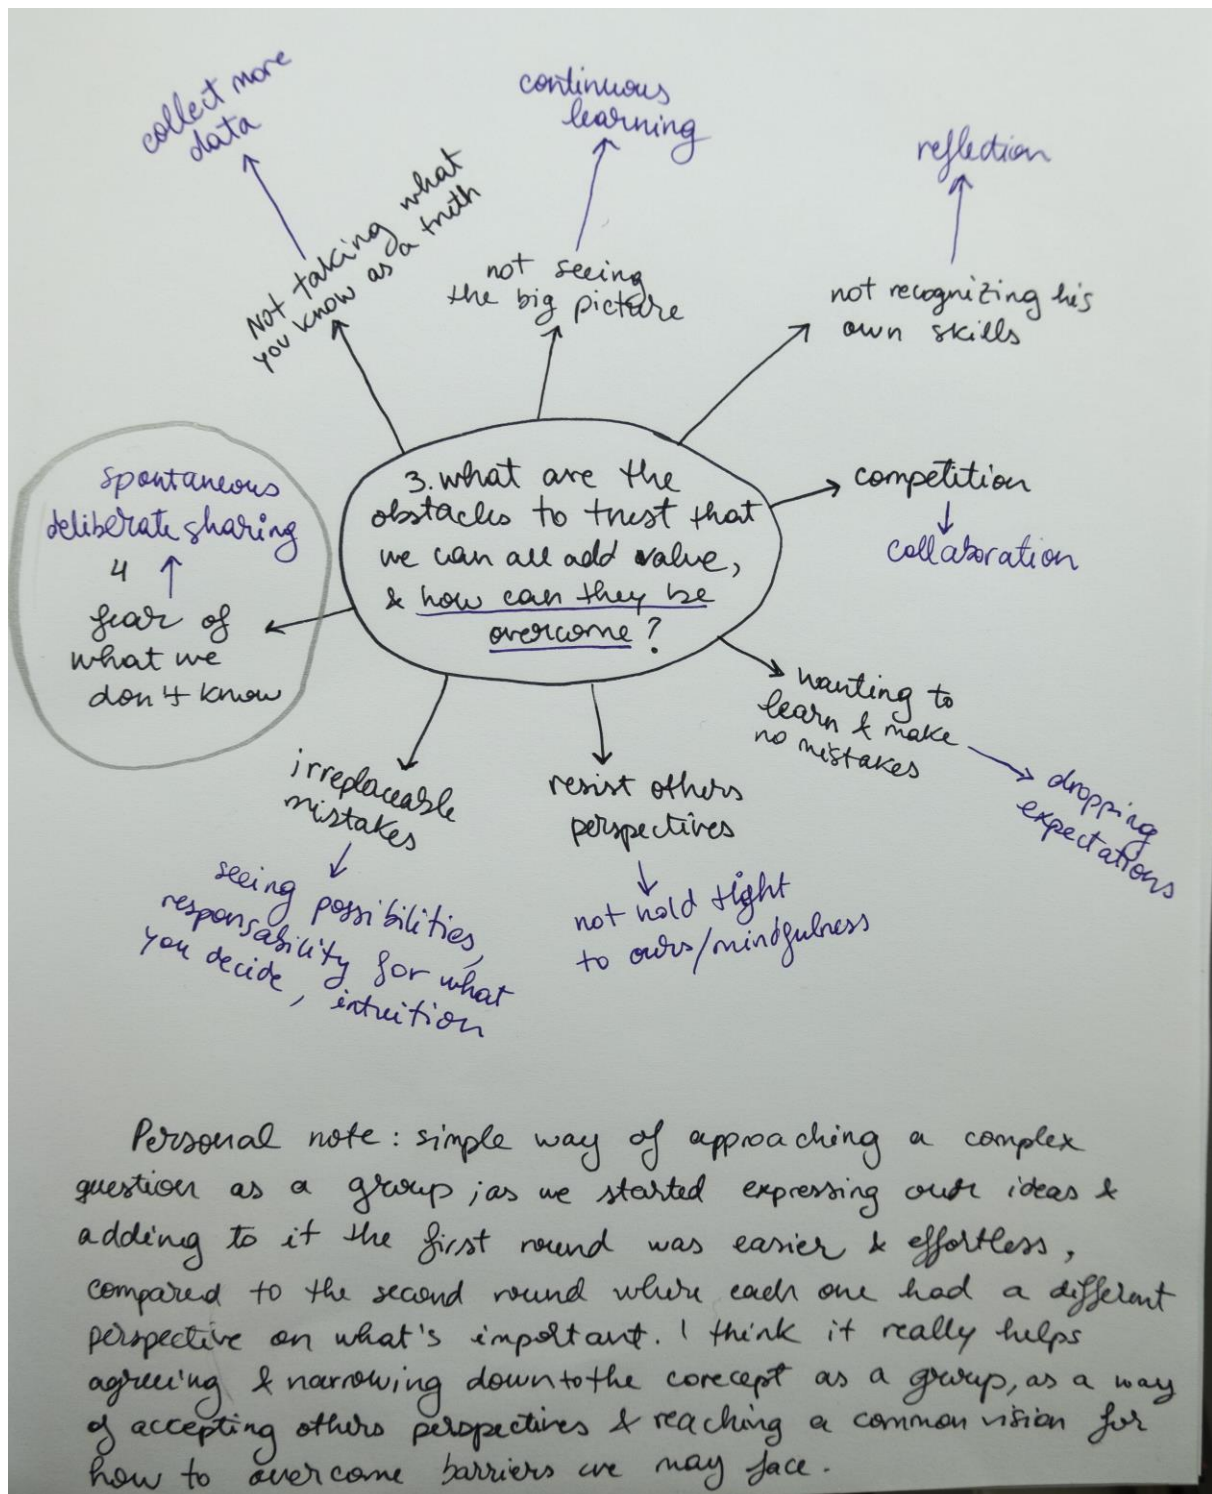 collect more
data
continuous
learning
reflection
Not taking what
you know as a truth
not seeing
the big picture
not recognizing his
own skills
spontaneous
deliberate sharing
4
fear of
what we
don't know
3. what are the
obstacles to trust that
we can all add value,
& how can they be
overcome?
competition
collaboration
wanting to
learn & make
no mistakes
dropping
expectations
irreplaceable
mistakes
seeing possibilities,
responsability for what
you decide, intuition
resist others
perspectives
not hold tight
to ours/mindfulness
Personal note: simple way of approaching a complex
question as a group; as we started expressing our ideas &
adding to it the first round was easier & effortless,
compared to the second round where each one had a different
perspective on what's important. I think it really helps
agreeing & narrowing down to the concept as a group, as a way
of accepting others perspectives & reaching a common vision for
how to overcome barriers we may face.